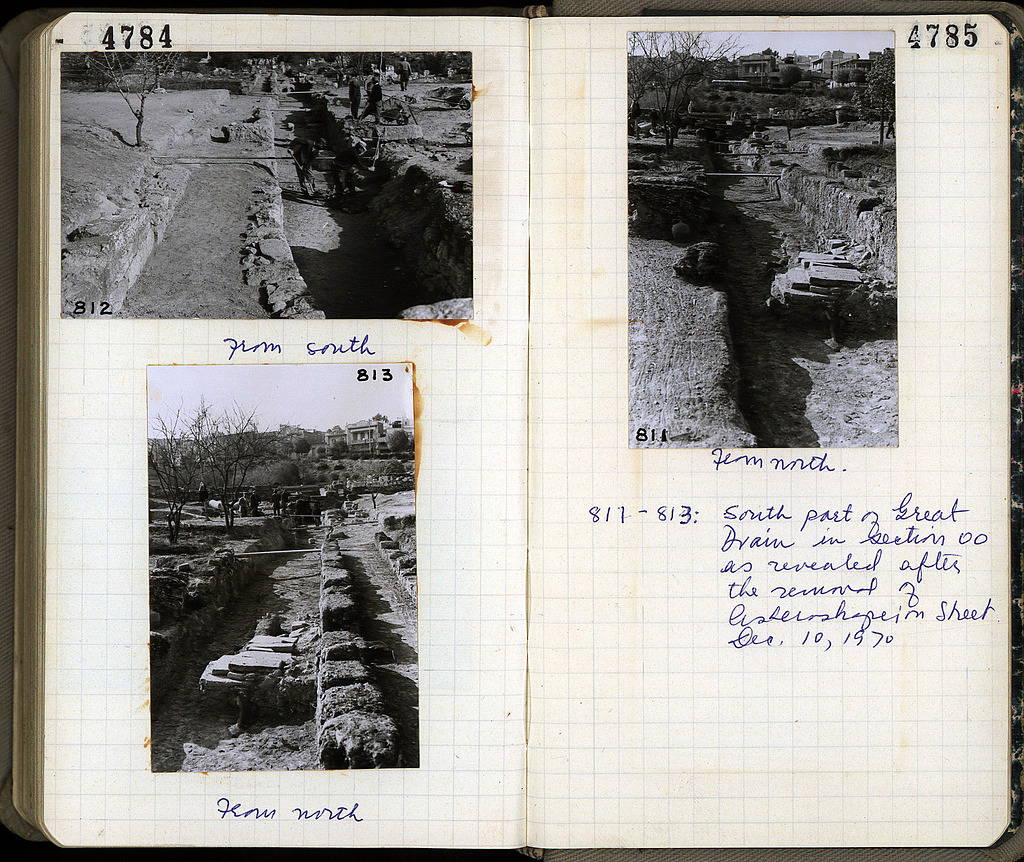 4784
812
From south
813
From north
4785
811
From north.
811-813: South part of Great
Drain in Section OO
as revealed after
the removal of
Asteroskopeion Street.
Dec. 10, 1970